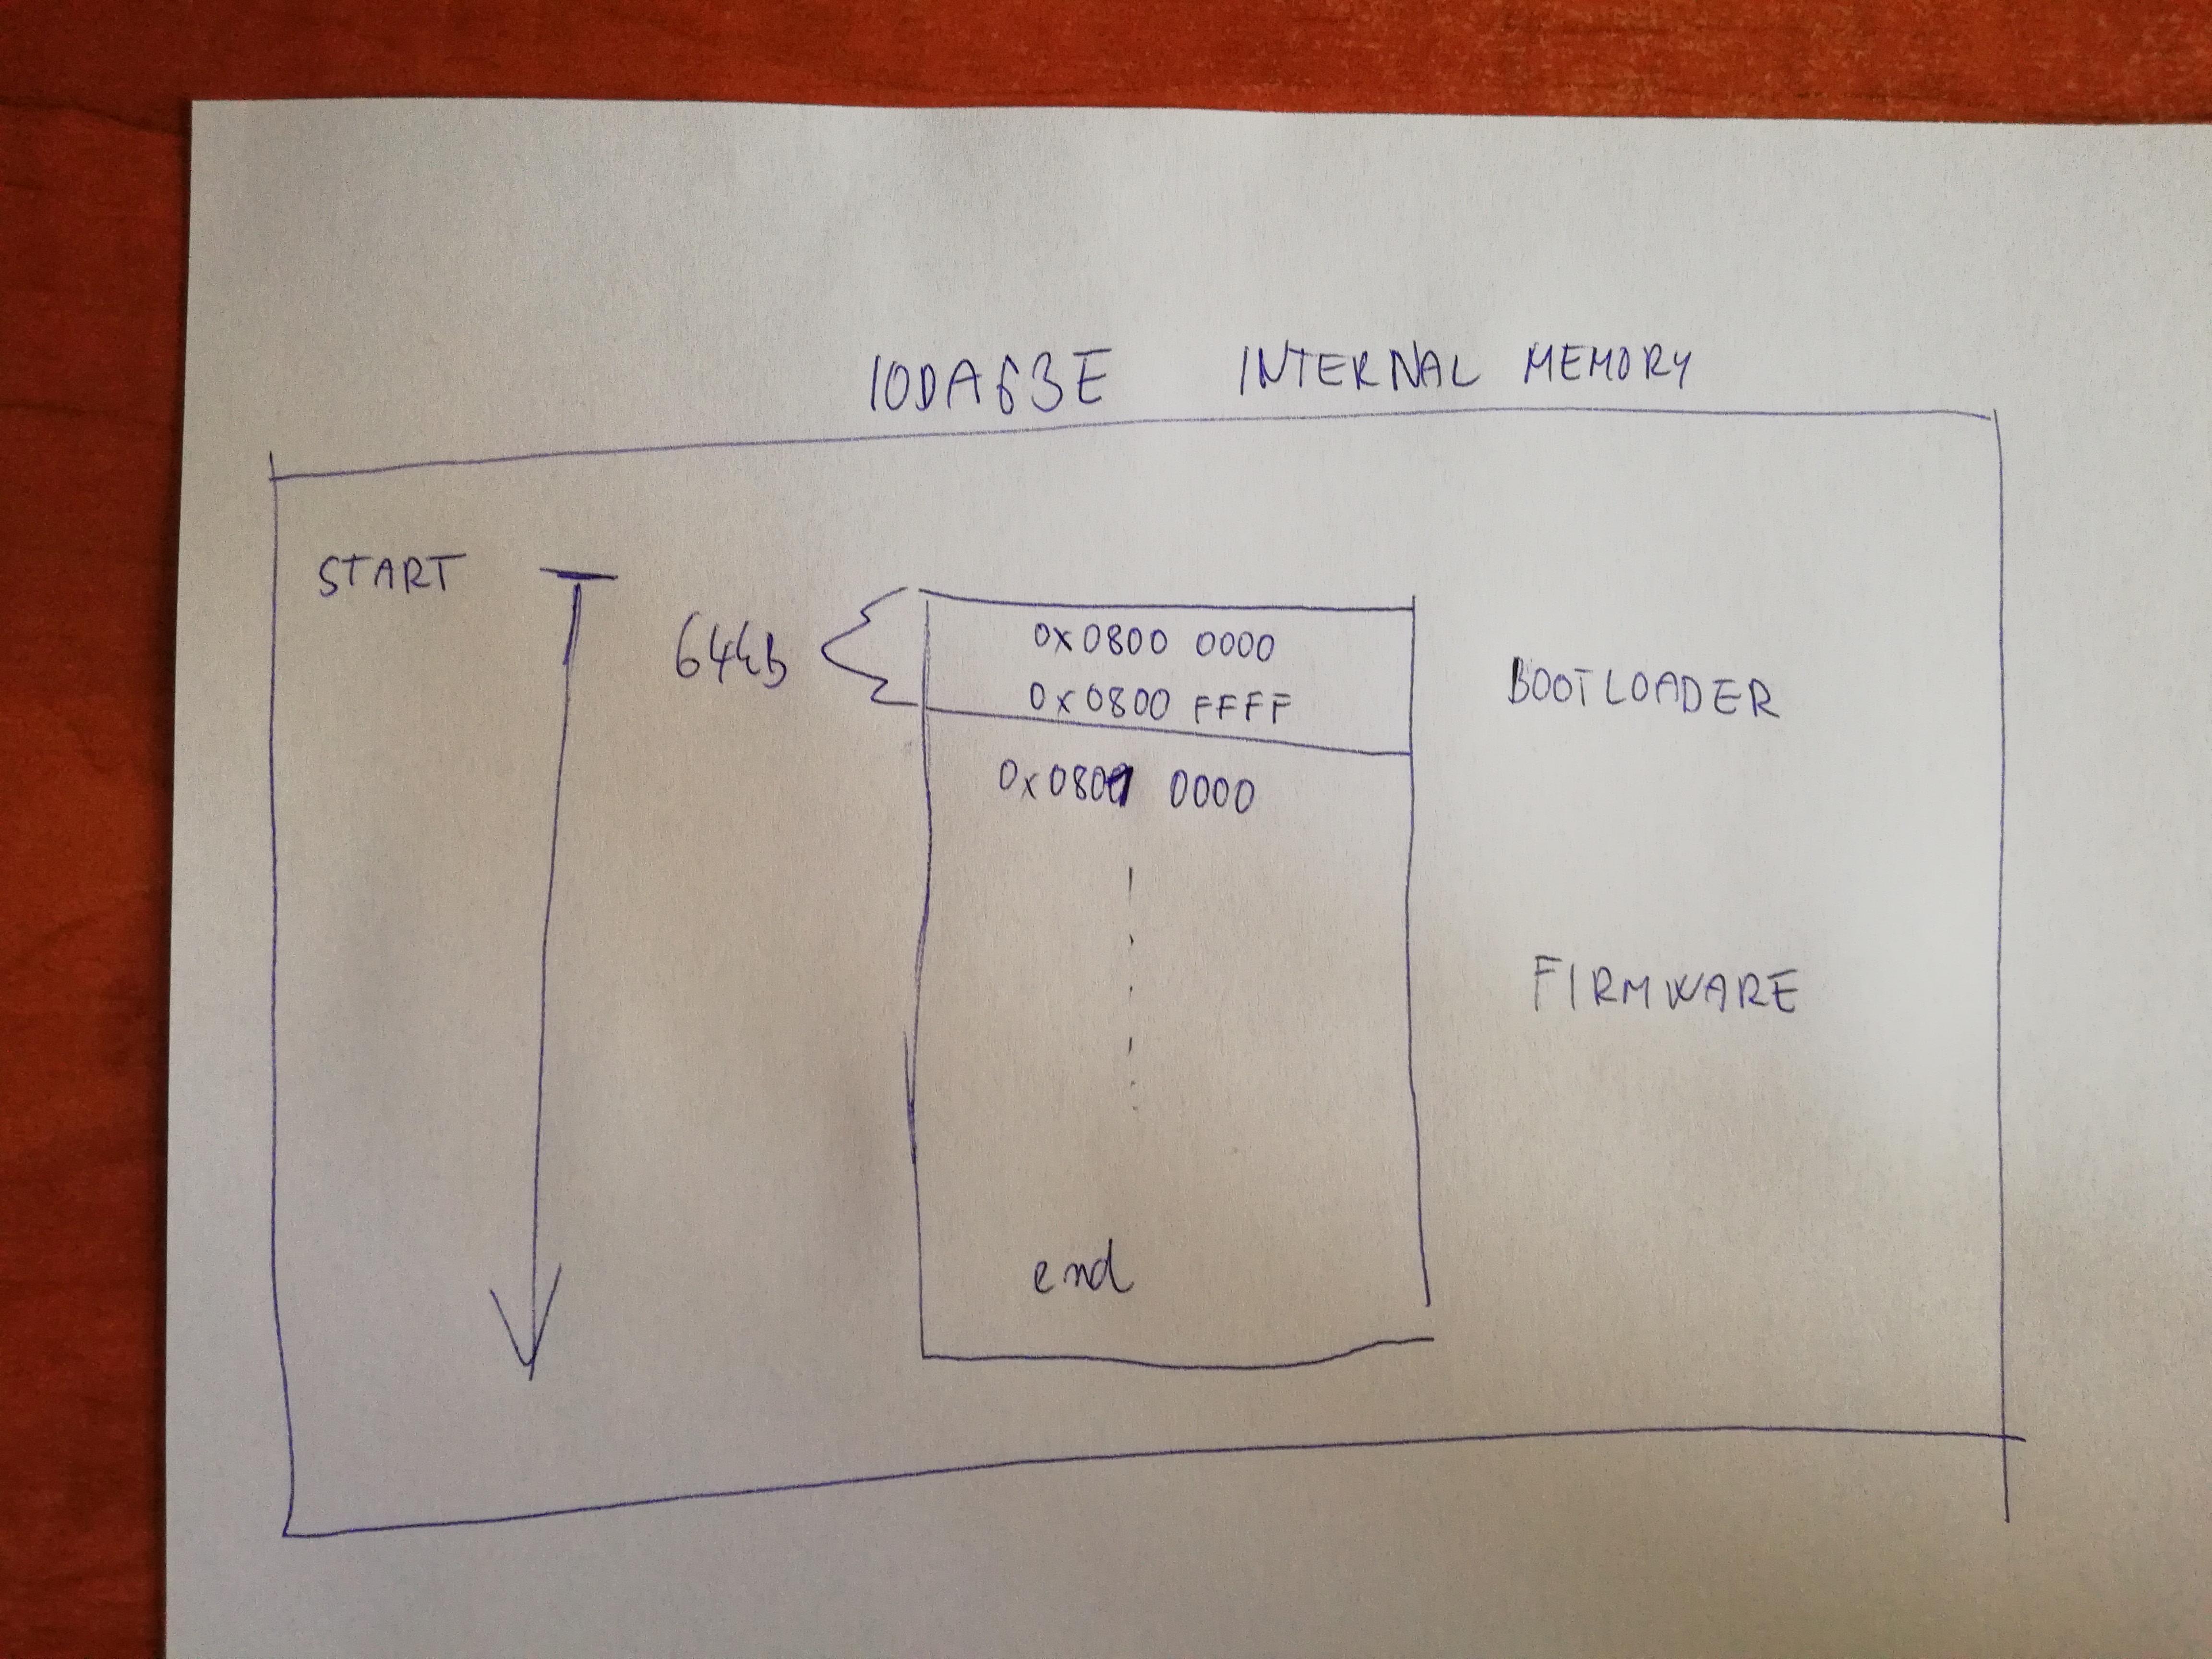 10DA63E INTERNAL MEMORY
START
64kB
0x0800 0000
0x0800 FFFF
BOOTLOADER
0x0801 0000
FIRMWARE
end